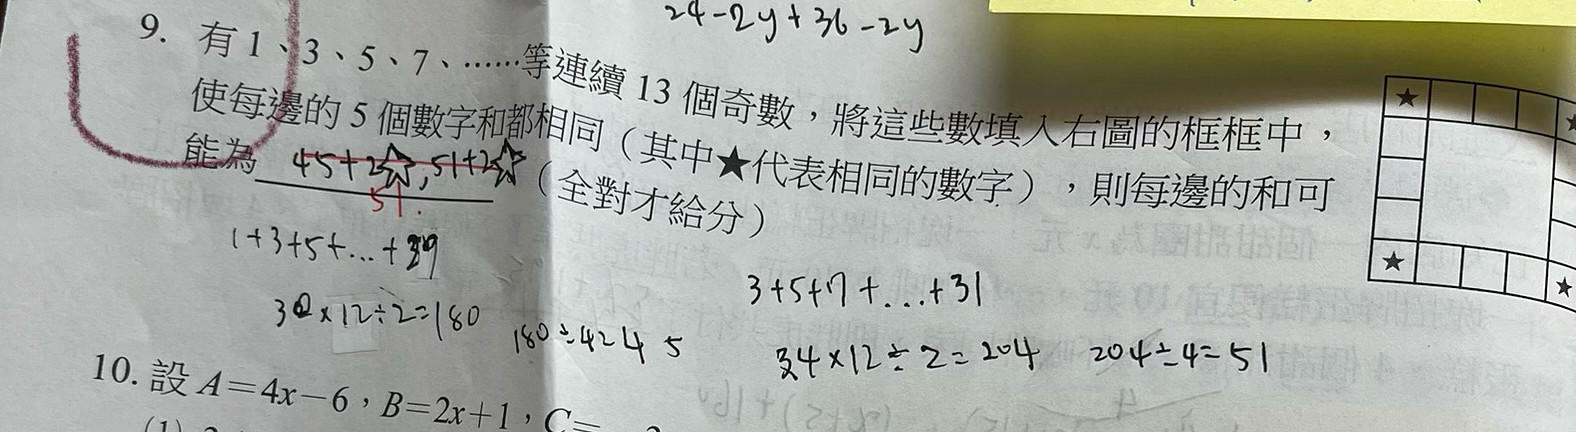 24-2y+36-2y
9. 有 1、3、5、7、……等連續 13 個奇數，將這些數填入右圖的框框中，
使每邊的 5 個數字和都相同（其中★代表相同的數字），則每邊的和可
能為 45+2☆,51+2☆（全對才給分）
51.
★
★
★
1+3+5+...+29
30×12÷2=180
180÷4=45
3+5+7+...+31
34×12÷2=204 204÷4=51
10. 設 A=4x-6，B=2x+1，C=
(1)